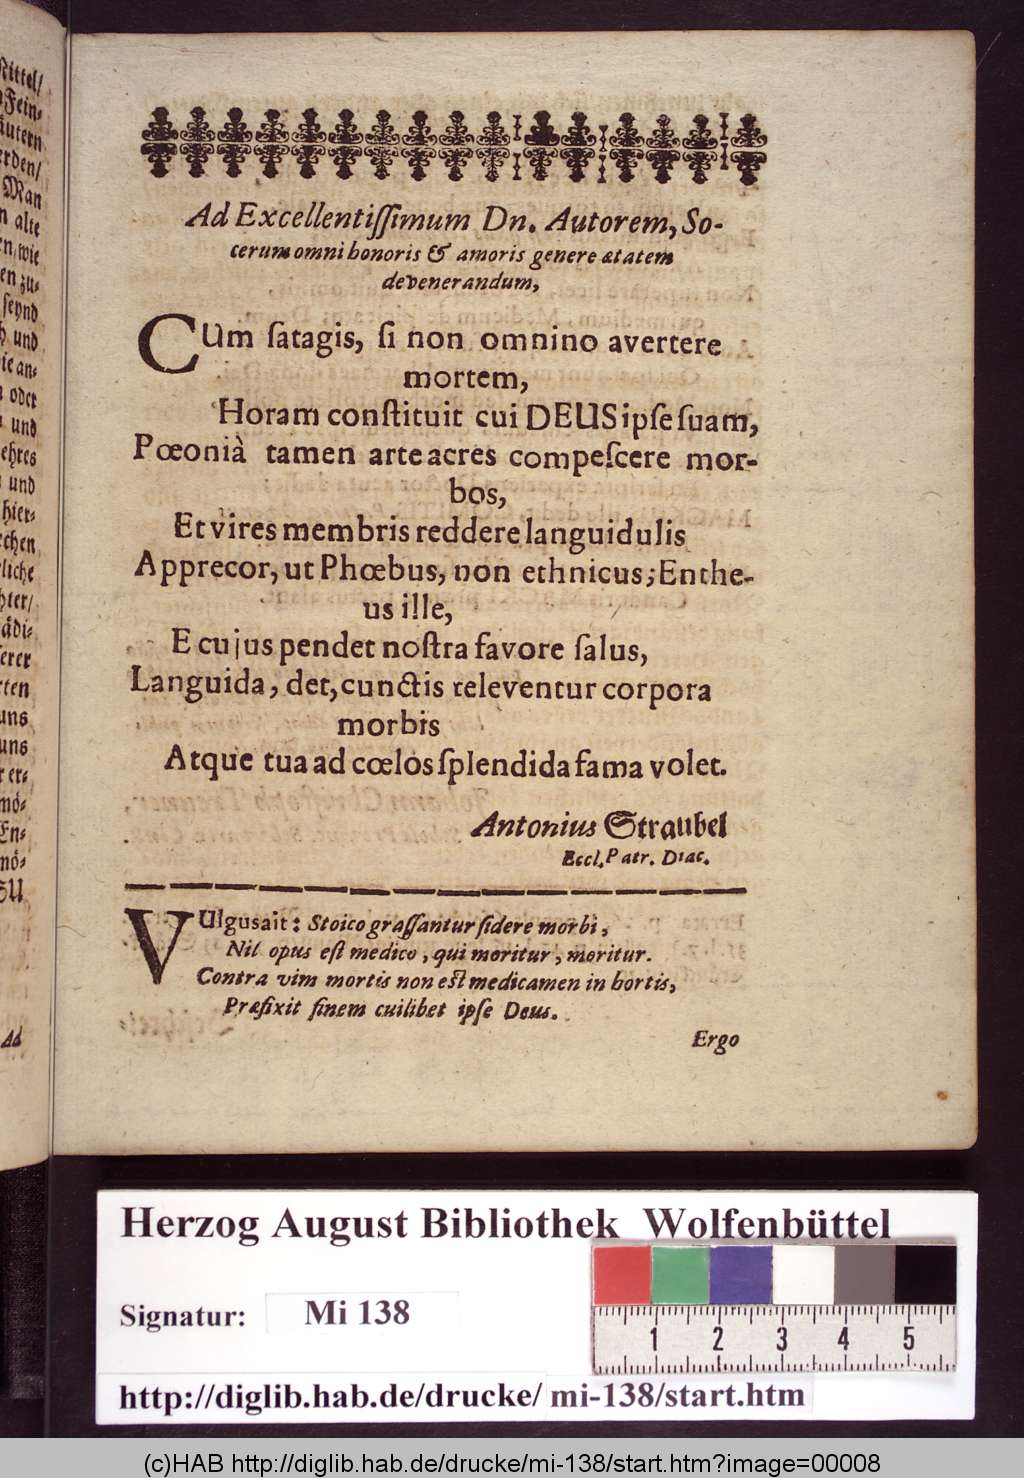 Rittel/
Fein-
äutern
erden/
Man
n alte
en, wie
en zu-
seynd
h und
ie an-
oder
und
ehres
und
hier-
rchen
rliche
hter/
ädi-
serer
rten
uns
uns
er er-
mö-
En-
mö-
SU
Ad
Ad Excellentiſſimum Dn. Autorem, So-
cerum omni honoris & amoris genere ætatem
devenerandum,
CUm ſatagis, ſi non omnino avertere
mortem,
Horam conſtituit cui DEUS ipſe ſuam,
Pœonià tamen arte acres compeſcere mor-
bos,
Et vires membris reddere languidulis
Apprecor, ut Phœbus, non ethnicus; Enthe-
us ille,
E cujus pendet noſtra favore ſalus,
Languida, det, cunctis releventur corpora
morbis
Atque tua ad cœlos ſplendida fama volet.
Antonius Straubel
Eccl. Patr. Diac.
VUlgus ait: Stoico graſſantur ſidere morbi,
Nil opus eſt medico, qui moritur, moritur.
Contra vim mortis non eſt medicamen in hortis,
Præfixit finem cuilibet ipſe Deus.
Ergo
Herzog August Bibliothek Wolfenbüttel
Signatur: Mi 138
1 2 3 4 5
http://diglib.hab.de/drucke/ mi-138/start.htm
(c)HAB http://diglib.hab.de/drucke/mi-138/start.htm?image=00008